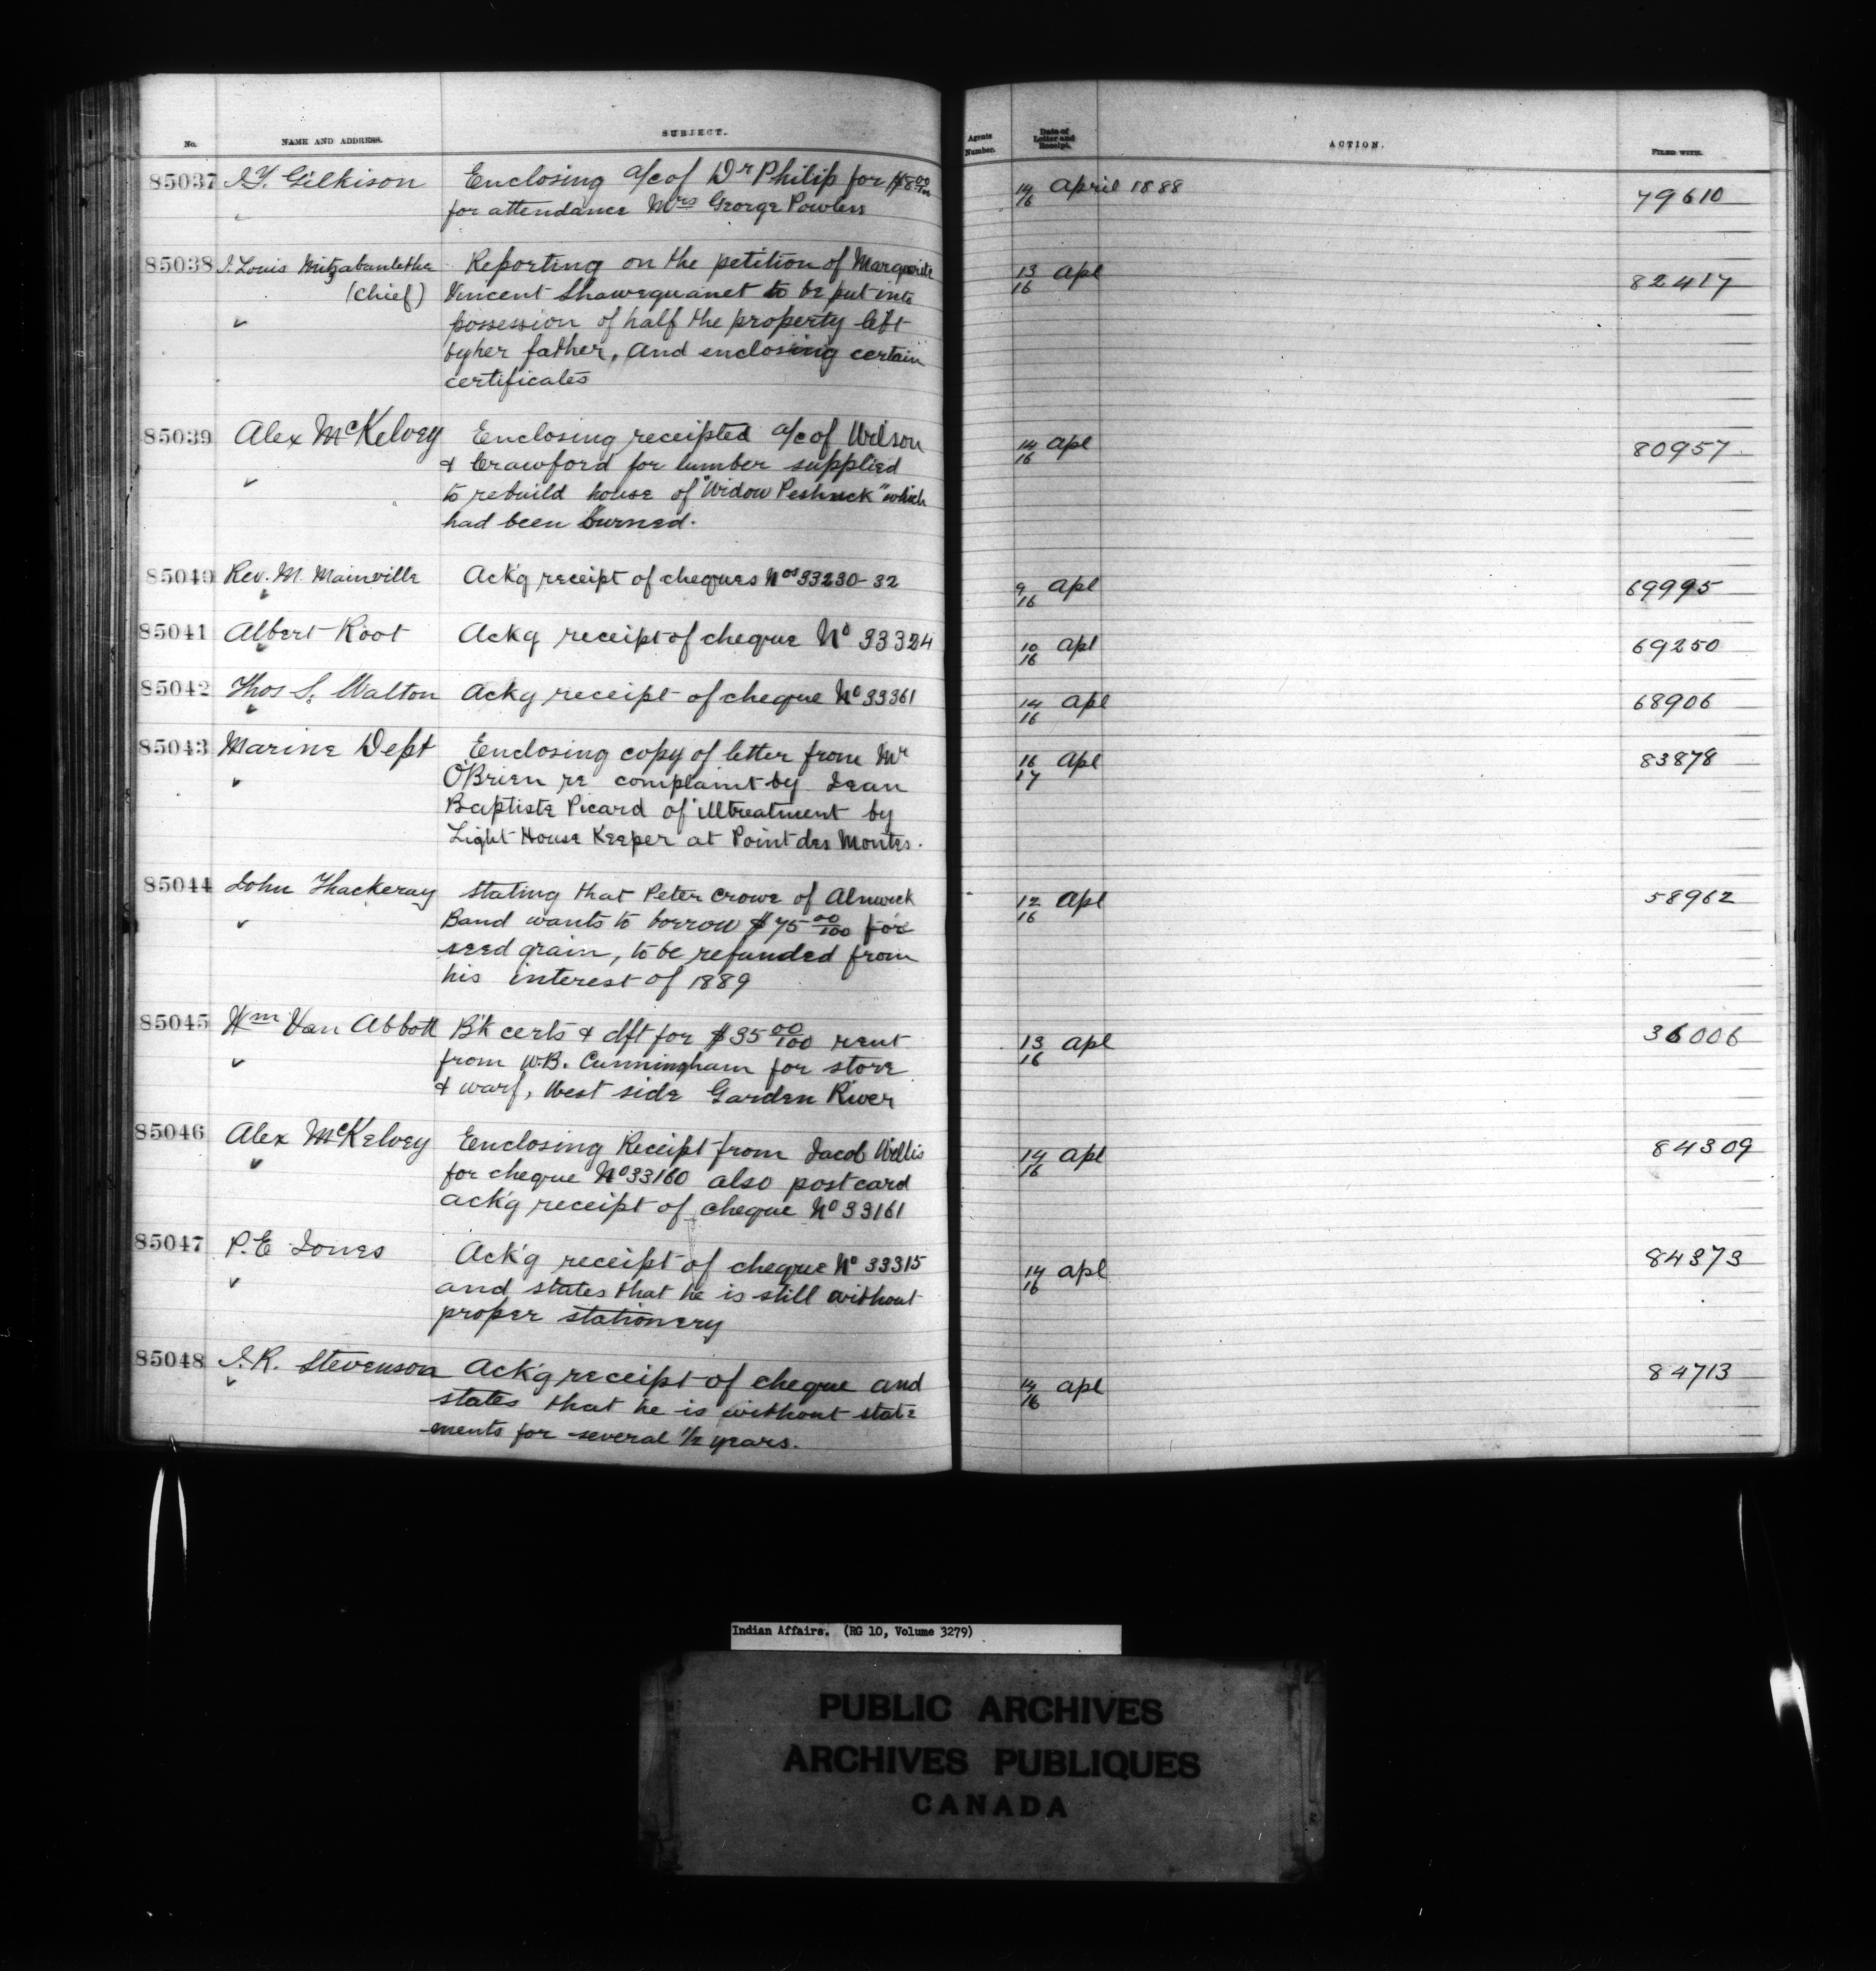 No. NAME AND ADDRESS. SUBJECT. Agents Number. Date of Letter and Receipt. ACTION. FILED WITH.
85037 J.T. Gilkison Enclosing a/c of Dr Philip for $8 00/100 14/16 April 1888 79610
for attendance Mrs George Powless
85038 J. Louis Reporting on the petition of Marguerite 13/16 Apl 82417
(Chief) Vincent Shawequanet to be put into
possession of half the property left
by her father, and enclosing certain
certificates
85039 Alex McKelvey Enclosing receipted a/c of Wilson 14/16 Apl 80957
& Crawford for lumber supplied
to rebuild house of "Widow " which
had been burned.
85040 Rev. M. Mainville Ack'g receipt of cheques Nos 33230-32 9/16 Apl 69995
85041 Albert Root Ackg receipt of cheque No 33324 10/16 Apl 69250
85042 Thos S. Walton Ackg receipt of cheque No 33361 14/16 Apl 68906
85043 Marine Dept Enclosing copy of letter from Mr 16/17 Apl 83878
O'Brien re complaint by Jean
Baptiste Picard of illtreatment by
Light House Keeper at Point des Montes.
85044 John Thackeray stating that Peter Crowe of Alnwick 12/16 Apl 58962
Band wants to borrow $75 00/100 for
seed grain, to be refunded from
his interest of 1889
85045 Wm Van Abbott B'k certs & dft for $35 00/100 rent 13/16 Apl 36006
from W.B. Cunningham for store
& warf, West side Garden River
85046 Alex McKelvey Enclosing Receipt from Jacob Willis 14/16 Apl 84309
for cheque No 33160 also postcard
ack'g receipt of cheque No 33161
85047 P.E Jones Ack'g receipt of cheque No 33315 14/16 apl 84373
and states that he is still without
proper stationery
85048 J.R. Stevenson Ack'g receipt of cheque and 14/16 apl 84713
states that he is without state
ments for several 1/2 years.
Indian Affairs. (RG 10, Volume 3279)
PUBLIC ARCHIVES
ARCHIVES PUBLIQUES
CANADA